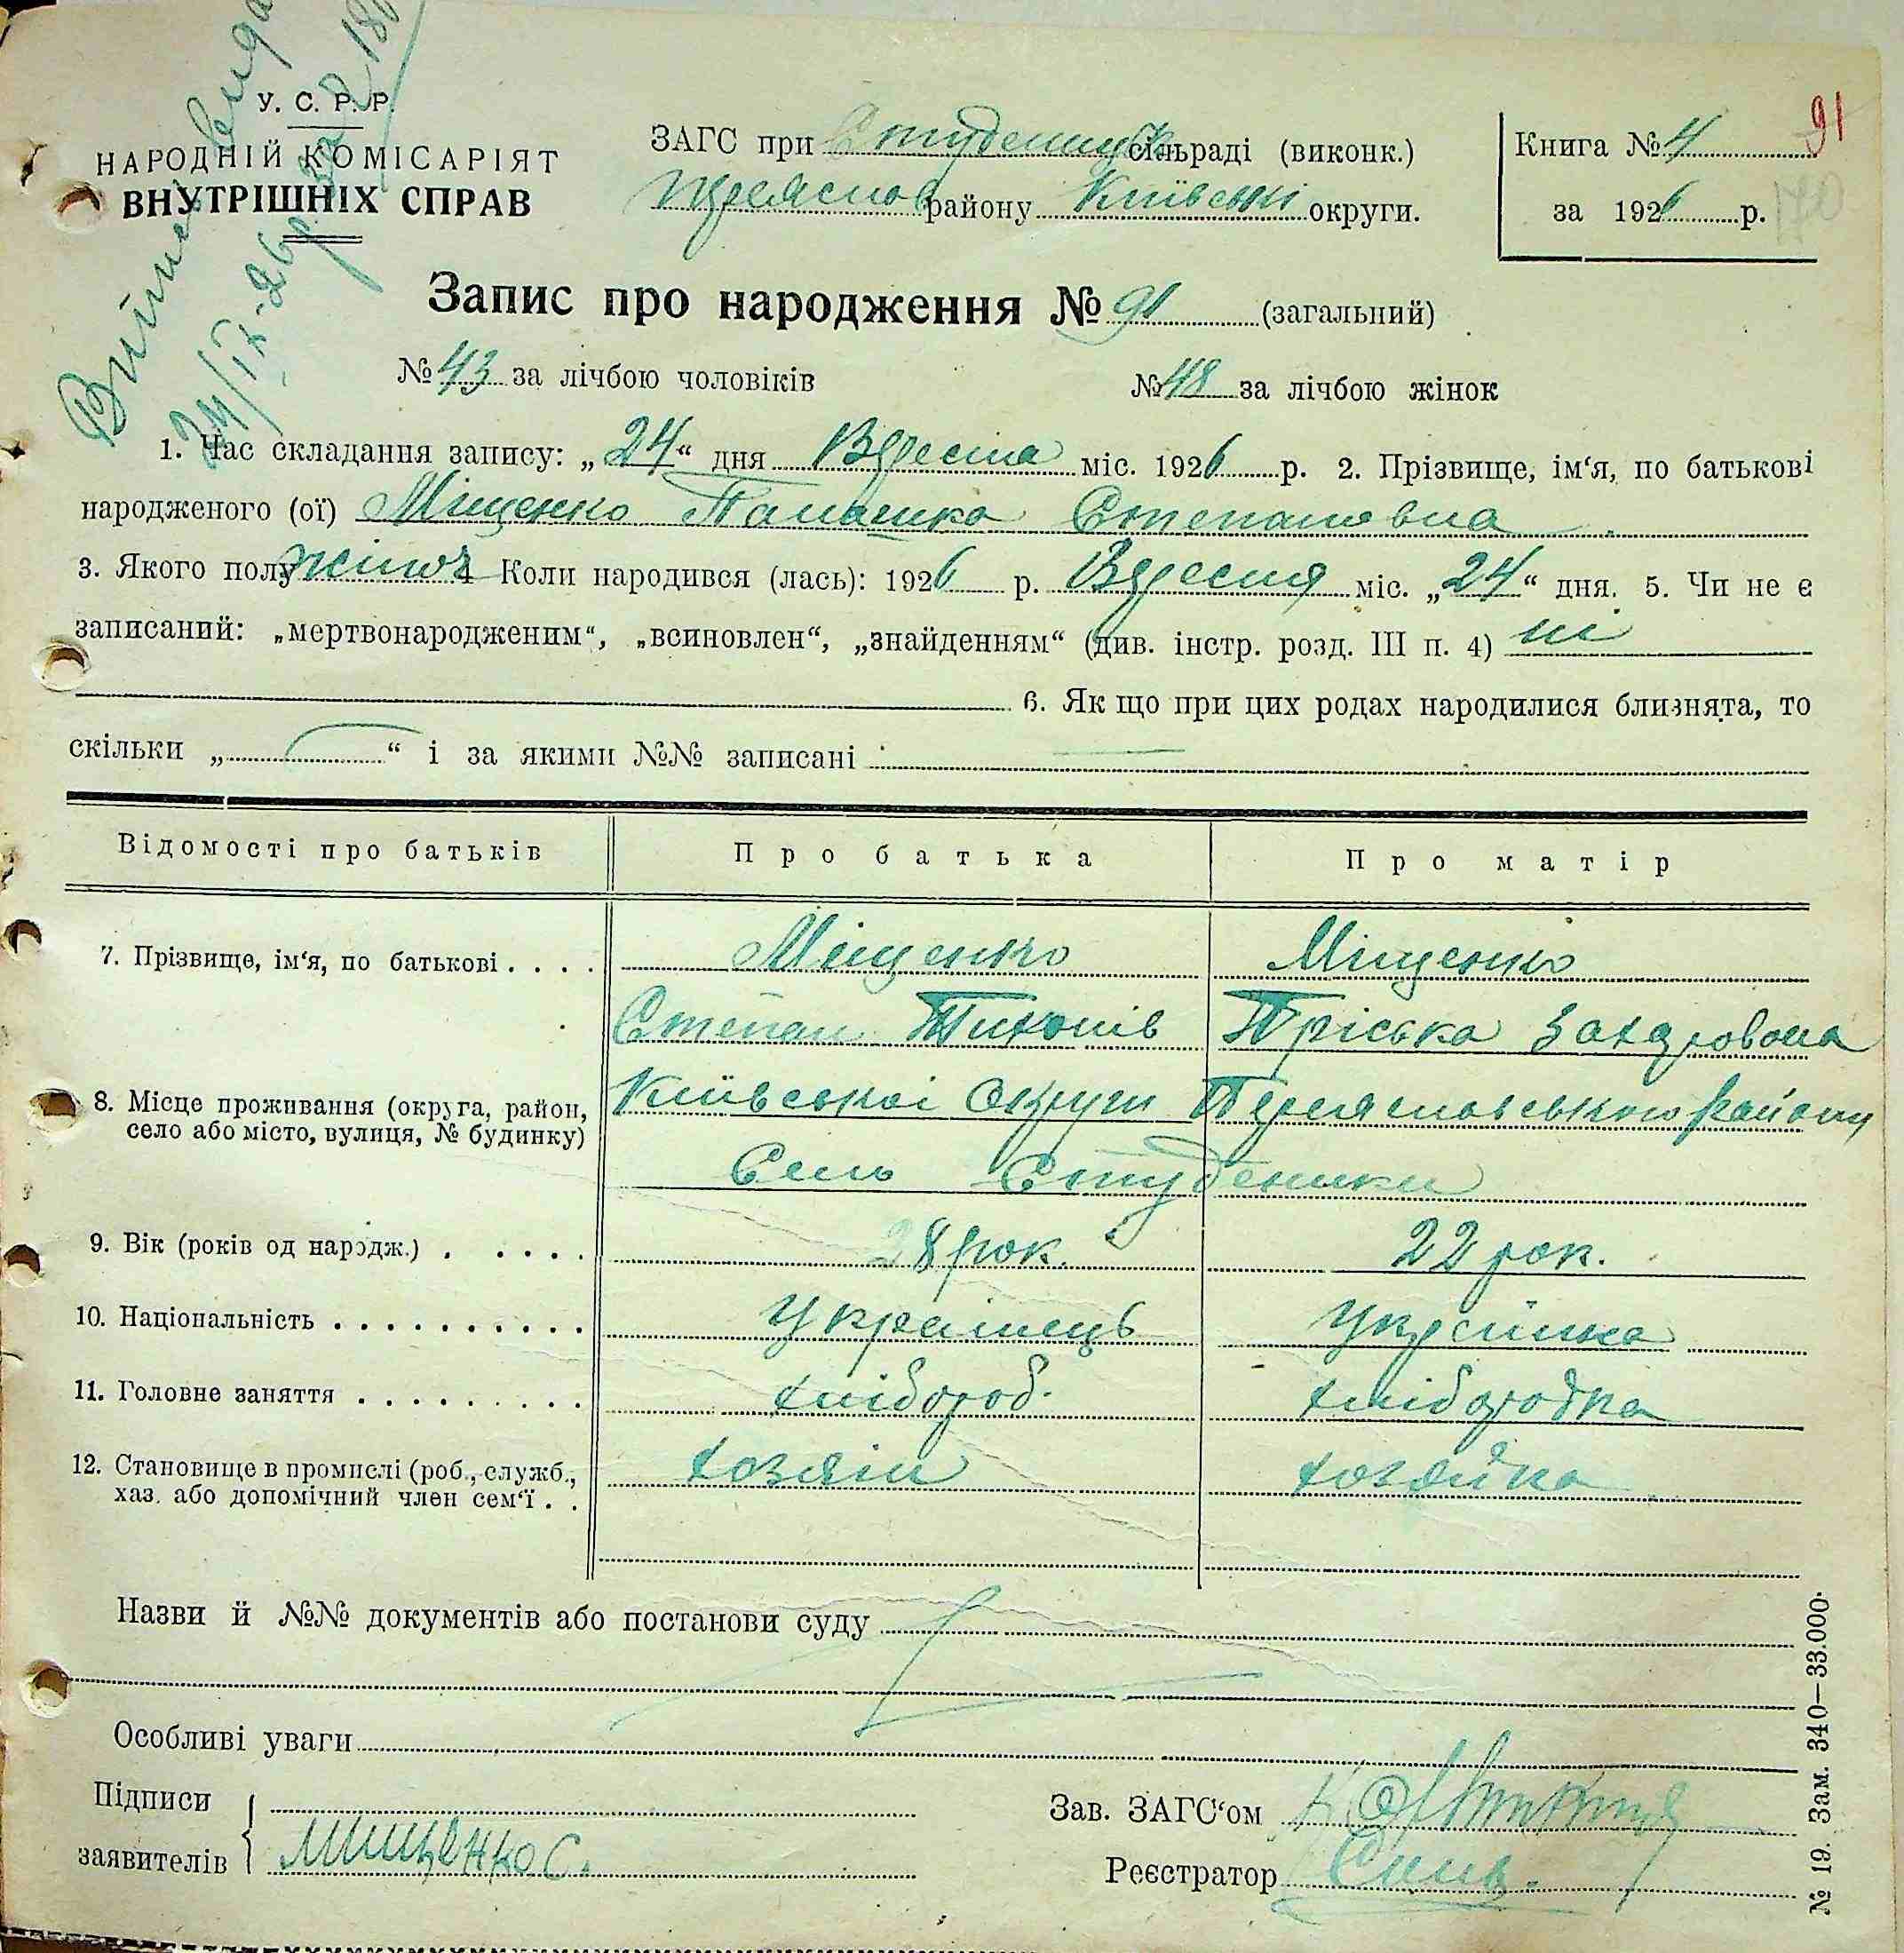 Витиг вида
24/IX-26р.
У. С. Р. Р.
НАРОДНІЙ КОМІСАРІЯТ
ВНУТРІШНІХ СПРАВ
ЗАГС при Студеницьк сільраді (виконк.)
Переяслов району Київські округи.
Книга № 4
91
за 1926 р.
170
Запис про народження № 91 (загальний)
№ 43 за лічбою чоловіків
№ 48 за лічбою жінок
1. Час складання запису: „24“ дня Вересня міс. 1926 р. 2. Прізвище, ім‘я, по батькові
народженого (ої) Міщенко Палашка Степановна
3. Якого полу жіноч 4 Коли народився (лась): 1926 р. Вересня міс. „24“ дня. 5. Чи не є
записаний: „мертвонародженим“, „всиновлен“, „знайденням“ (див. інстр. розд. III п. 4) ні
6. Як що при цих родах народилися близнята, то
скільки „ “ і за якими №№ записані
Відомості про батьків
Про батька
Про матір
7. Прізвище, ім‘я, по батькові
Міщенко
Міщенко
Степан Тихонів
Пріська Захаровона
8. Місце проживання (округа, район,
село або місто, вулиця, № будинку)
Київської Округи Переяславського Району
Село Студеники
9. Вік (років од народж.)
28 рок.
22 рок.
10. Національність
Українець
Українка
11. Головне заняття
хлібороб.
хліборобка
12. Становище в промислі (роб., служб.,
хаз. або допомічний член сем‘ї
хозяін
хозяйка
Назви й №№ документів або постанови суду
Особливі уваги
Підписи
заявителів
Мищенко С.
Зав. ЗАГС‘ом
Реєстратор
№ 19. Зам. 340—33.000.